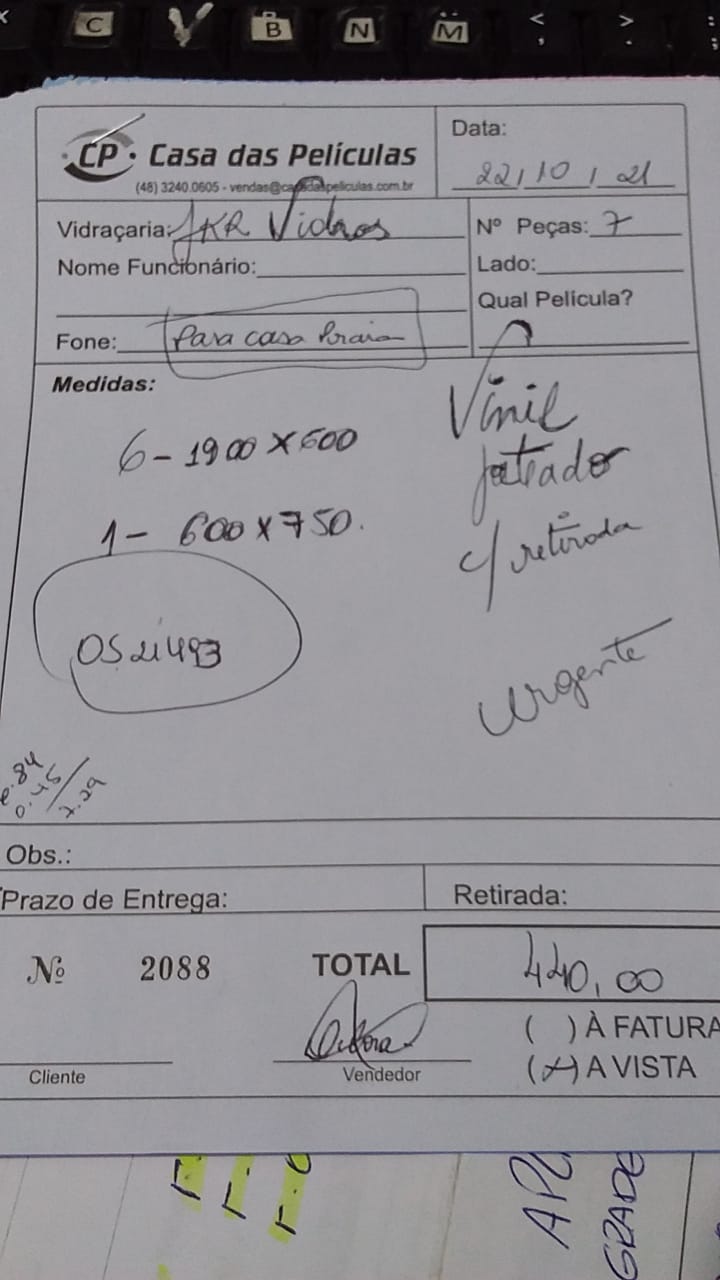 C V B N M < , > .
CP Casa das Películas
(48) 3240.0605 - vendas@casadaspeliculas.com.br
Data:
22/10/21
Vidraçaria: JKR Vidros
Nº Peças: 7
Nome Funcionário:
Lado:
Qual Película?
Fone: Para casa Praia
Medidas:
Vinil
jateador
c/ retirada
6 - 1900 X 600
1 - 600 X 750.
OS 21493
Urgente
6.84
0.45
7.29
Obs.:
Prazo de Entrega:
Retirada:
Nº 2088
TOTAL
440,00
( ) À FATURA
(X) A VISTA
Cliente
Vendedor
APL
GRADE